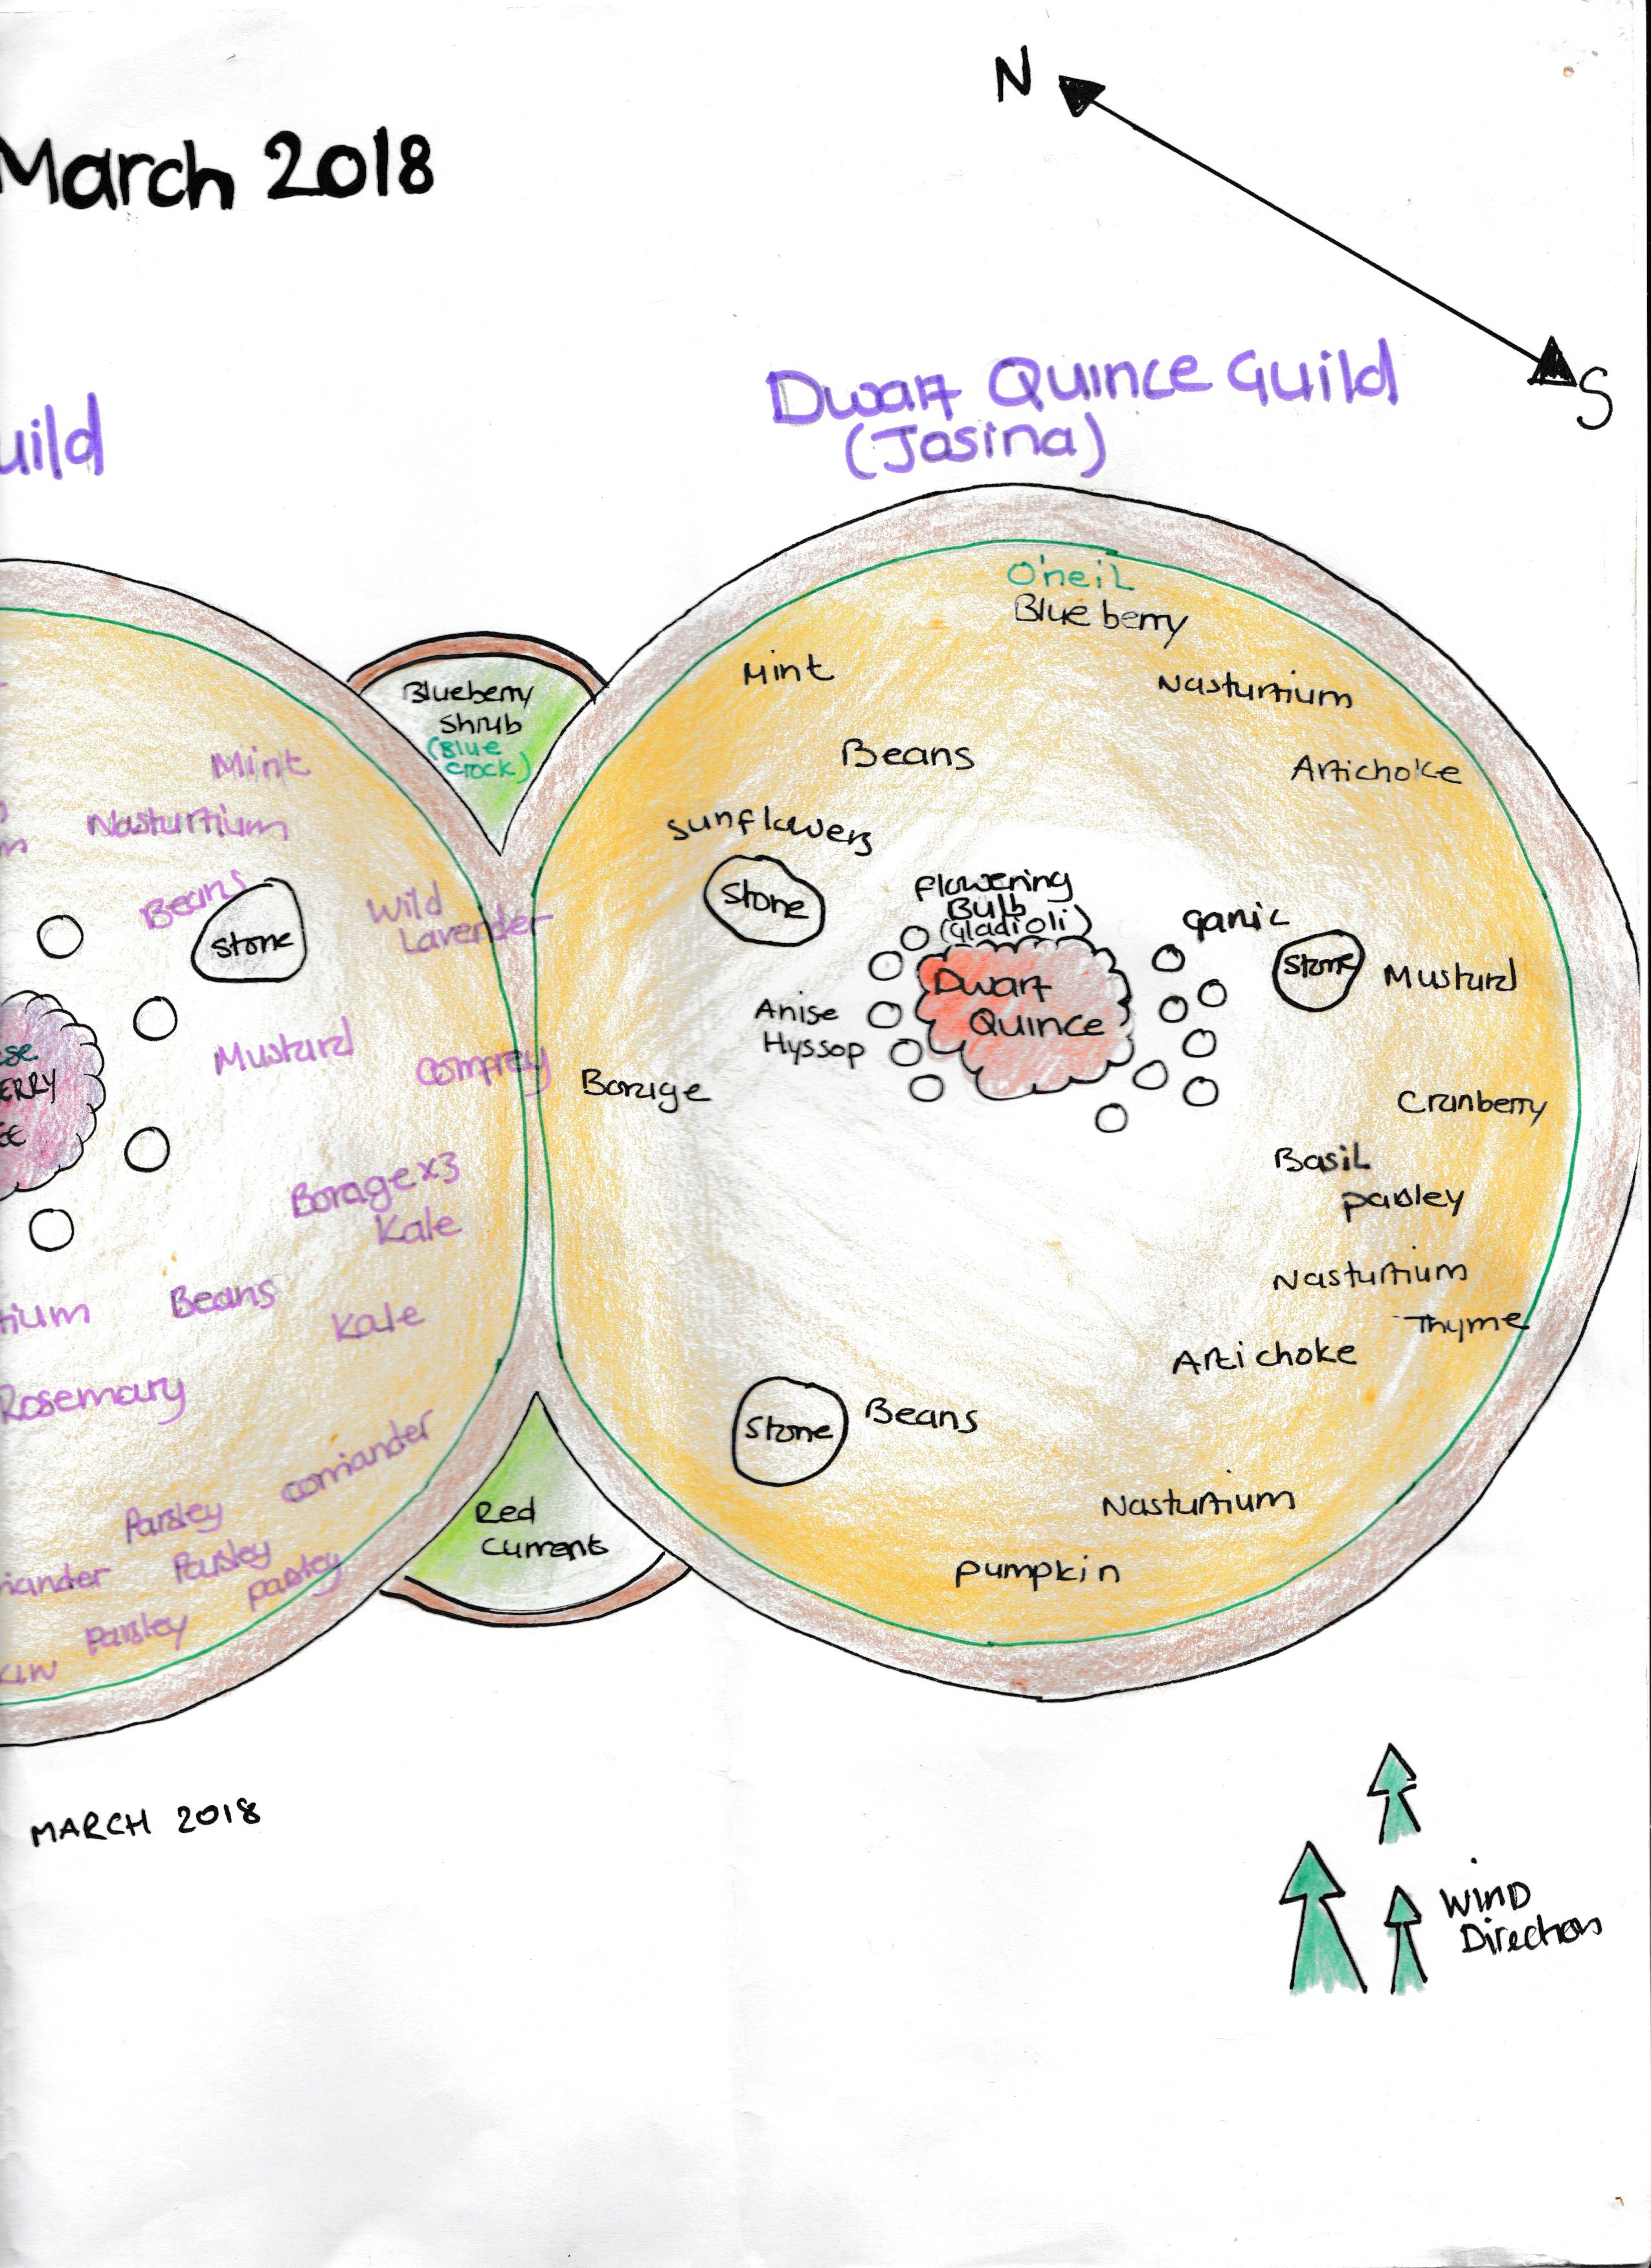 N
March 2018
S
Dwarf Quince Guild
(Josina)
uild
O'neil
Blueberry
Mint
Nasturtium
Blueberry
Shrub
(Blue
crock)
Beans
Artichoke
Mint
Nasturtium
Sunflowers
Stone
Flowering
Bulb
(Gladioli)
Beans
Stone
Wild
Lavender
ganic
Stone
Mustard
Dwarf
Quince
Anise
Hyssop
Mustard
Comfrey
Borage
ERRY
Cranberry
Basil
Parsley
Borage x3
Kale
Nasturtium
Thyme
tium
Beans
Kale
Artichoke
Rosemary
Stone
Beans
corriander
Parsley
Red
Currents
Nasturtium
riander
Parsley
parsley
pumpkin
parsley
KIN
MARCH 2018
WIND
Direction